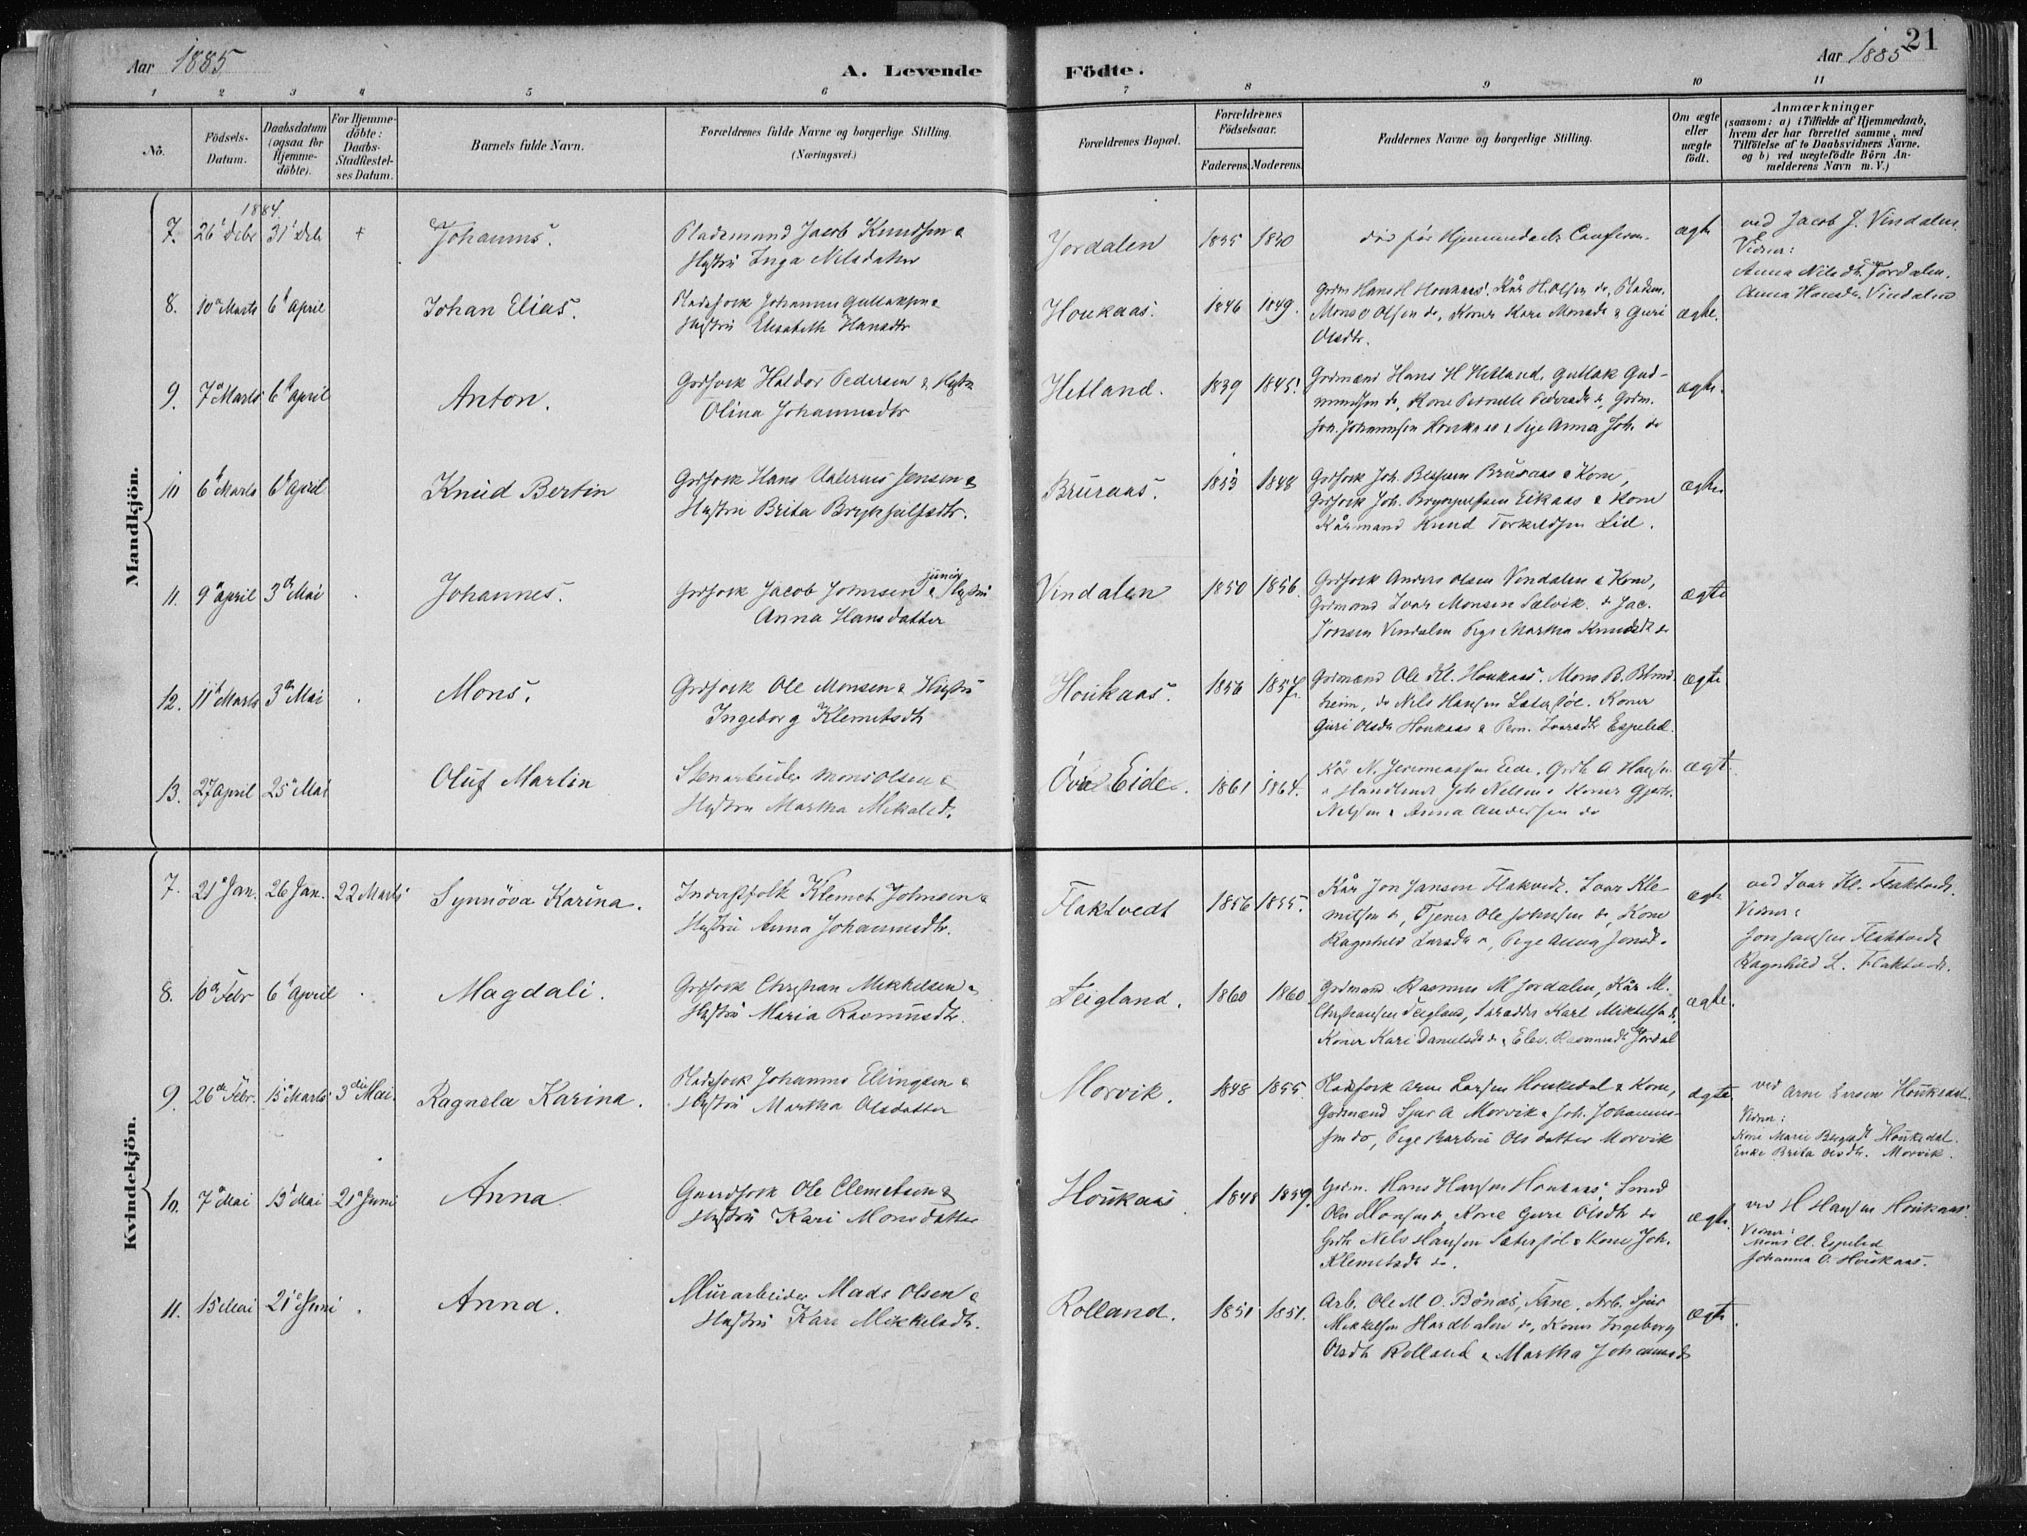 Aar 1885
A. Levende
Födte.
Aar 1885
21
1 2 3 4 5 6 7 8 9 10 11
Nô.
Födsels-
Datum.
Daabsdatum
(ogsaa for
Hjemme-
döbte).
For Hjemme-
döbte:
Daabs-
Stadfæstel-
ses Datum.
Barnets fulde Navn.
Forældrenes fulde Navne og borgerlige Stilling.
(Næringsvei.)
Forældrenes Bopæl.
Forældrenes
Födselsaar.
Faderens. Moderens.
Faddernes Navne og borgerlige Stilling.
Om ægte
eller
uægte
födt.
Anmærkninger
(saasom: a) i Tilfælde af Hjemmedaab,
hvem der har forrettet samme, med
Tilföielse af to Daabsvidners Navne,
og b) ved uægtefödte Börn An-
melderens Navn m. V.)
Mandkjön.
1884.
7. 26 Debr 31 Deb + Johannes.
Pladsmand Jacob Knudsen &
Hustru Inga Nilsdatter
Jordalen 1835 1830
död för Hjemmedaab Conferm.
ægte
ved Jacob J. Vindalen
Vidner:
Anna Nilsdtr Jordalen.
Anna Hansdtr. Vindalen
8. 10 Marts 6 April Johan Elias.
Pladsfolk Johannes Gullaksen &
Hustru Elisabeth Hansdtr
Houkaas. 1846 1849.
Grdm Hans H Houkaas. Kår H. Olsen do, Pladsm.
Mons Olsen do, Koner Kari Monsdr & Guri
Olsdtr.
ægte.
9. 7 Marts 6 April Anton.
Grdfolk Haldor Pedersen & Hustru
Olina Johannesdtr
Hetland. 1839 1845.
Grdmænd Hans H Hetland. Gullak Gud-
mundsen do, Kone Pernille Pedersdtr do, Grdm.
Joh. Johannesen Houkaas & Pige Anna Joh. do
ægte.
10 6 Marts 6 April Knud Bertin
Grdfolk Hans Jensen &
Hustru Brita Brynjulfsdtr.
Bruraas. 1853 1848
Grdfolk Joh. Bruraas & Kone,
Grdfolk Joh. Brynjulfsen Eikaas & Kone
Kårmand Knud Torkeldsen Lid.
ægte
11. 9 April 3 Mai . Johannes.
Grdfolk Jacob Johnsen junior & Hustru
Anna Hansdatter
Vindalen 1850 1856.
Grdfolk Anders Olsen Vindalen & Kone,
Grdmand Ivar Monsen Sælvik. do Jac.
Jonsen Vindalen Pige Martha Knudsdtr do
ægte
12. 11 Marts 3 Mai . Mons.
Grdfolk Ole Monsen & Hustru
Ingeborg Klemetsdtr
Houkaas. 1856 1857.
Grdmænd Ole Kl. Houkaas. Mons B. Blind-
heim, do Nils Hansen Sæterstöl. Koner
Guri Olsdtr Houkaas & Pern. Ivarsdtr Espeled.
ægte
13. 27 April 25 Mai Oluf Martin
Stenarbeider Mons Olsen &
Hustru Martha Mikalsd.
Övre Eide. 1861 1864.
Kår N. Jeremiassen Eide. Grdb A Hansen
& Handlende Joh Nilsen & Koner
Nilsen & Anna Andersen do
ægt.
Kvindekjön.
7. 21 Jan. 26 Jan. 22 Marts Synnöva Karina.
Inderstfolk Klemet Johnsen &
Hustru Anna Johannesdtr.
Flaktvedt 1856 1855.
Kår Jon Janson Flakvedt. Ivar Kle-
metsen do, Tjener Ole Johnsen do, Kone
Ragnhild Larsdtr do, Pige Anna Jonsd.
ægte
ved Ivar Kl. Flaktvedt.
Vidner:
Jon Jansen Flaktvedt
Ragnhild L. Flaktvedt.
8. 10 Febr 6 April . Magdali.
Grdfolk Christian Mikkelsen &
Hustru Maria Rasmusdtr.
Teigland. 1860 1860
Grdmand Rasmus M Jordalen, Kår M.
Christiansen Teigland, Karl Mikkelsen do,
Koner Kari Danielsdtr do & Elev. Rasmusdtr Jordal
ægte.
9. 26 Febr. 15 Marts 3 Mai. Ragnela Karina.
Pladsfolk Johannes Ellingsen &
Hustru Martha Olsdatter
Morvik. 1848 1855.
Pladsfolk Arne Larsen Houkedal & Kone,
Grdmænd Sjur A Morvik & Joh. Johannes-
sen do, Pige Barbru Olsdatter Morvik
ægte
ved Arne Larsen Houkedal.
Vidner:
Kone Marie Houkedal.
Enke Brita Olsdtr. Morvik.
10. 7 Mai 13 Mai 21 Juni Anna
Gaardfolk Ole Clemetsen &
Hustru Kari Monsdatter
Houkaas 1848 1859.
Grdm. Hans Hansen Houkaas,
Ole Monsen do, Kone Guri Olsdtr do
Grdb Nils Hansen Sæterstöl & Kone Joh.
Klemetsdtr do.
ægte.
ved H Hansen Houkaas.
Vidner:
Mons Cl. Espeled
Johanna O. Houkaas.
11. 15 Mai 21 Juni . Anna.
Murarbeider Mads Olsen &
Hustru Kari Mikkelsdtr.
Rolland. 1851 1851.
Arb. Ole M O. Bönæs, Fane. Arb. Sjur
Mikkelsen Hardbalen do, Koner Ingeborg
Olsdtr Rolland & Martha Johannesdtr
ægte.